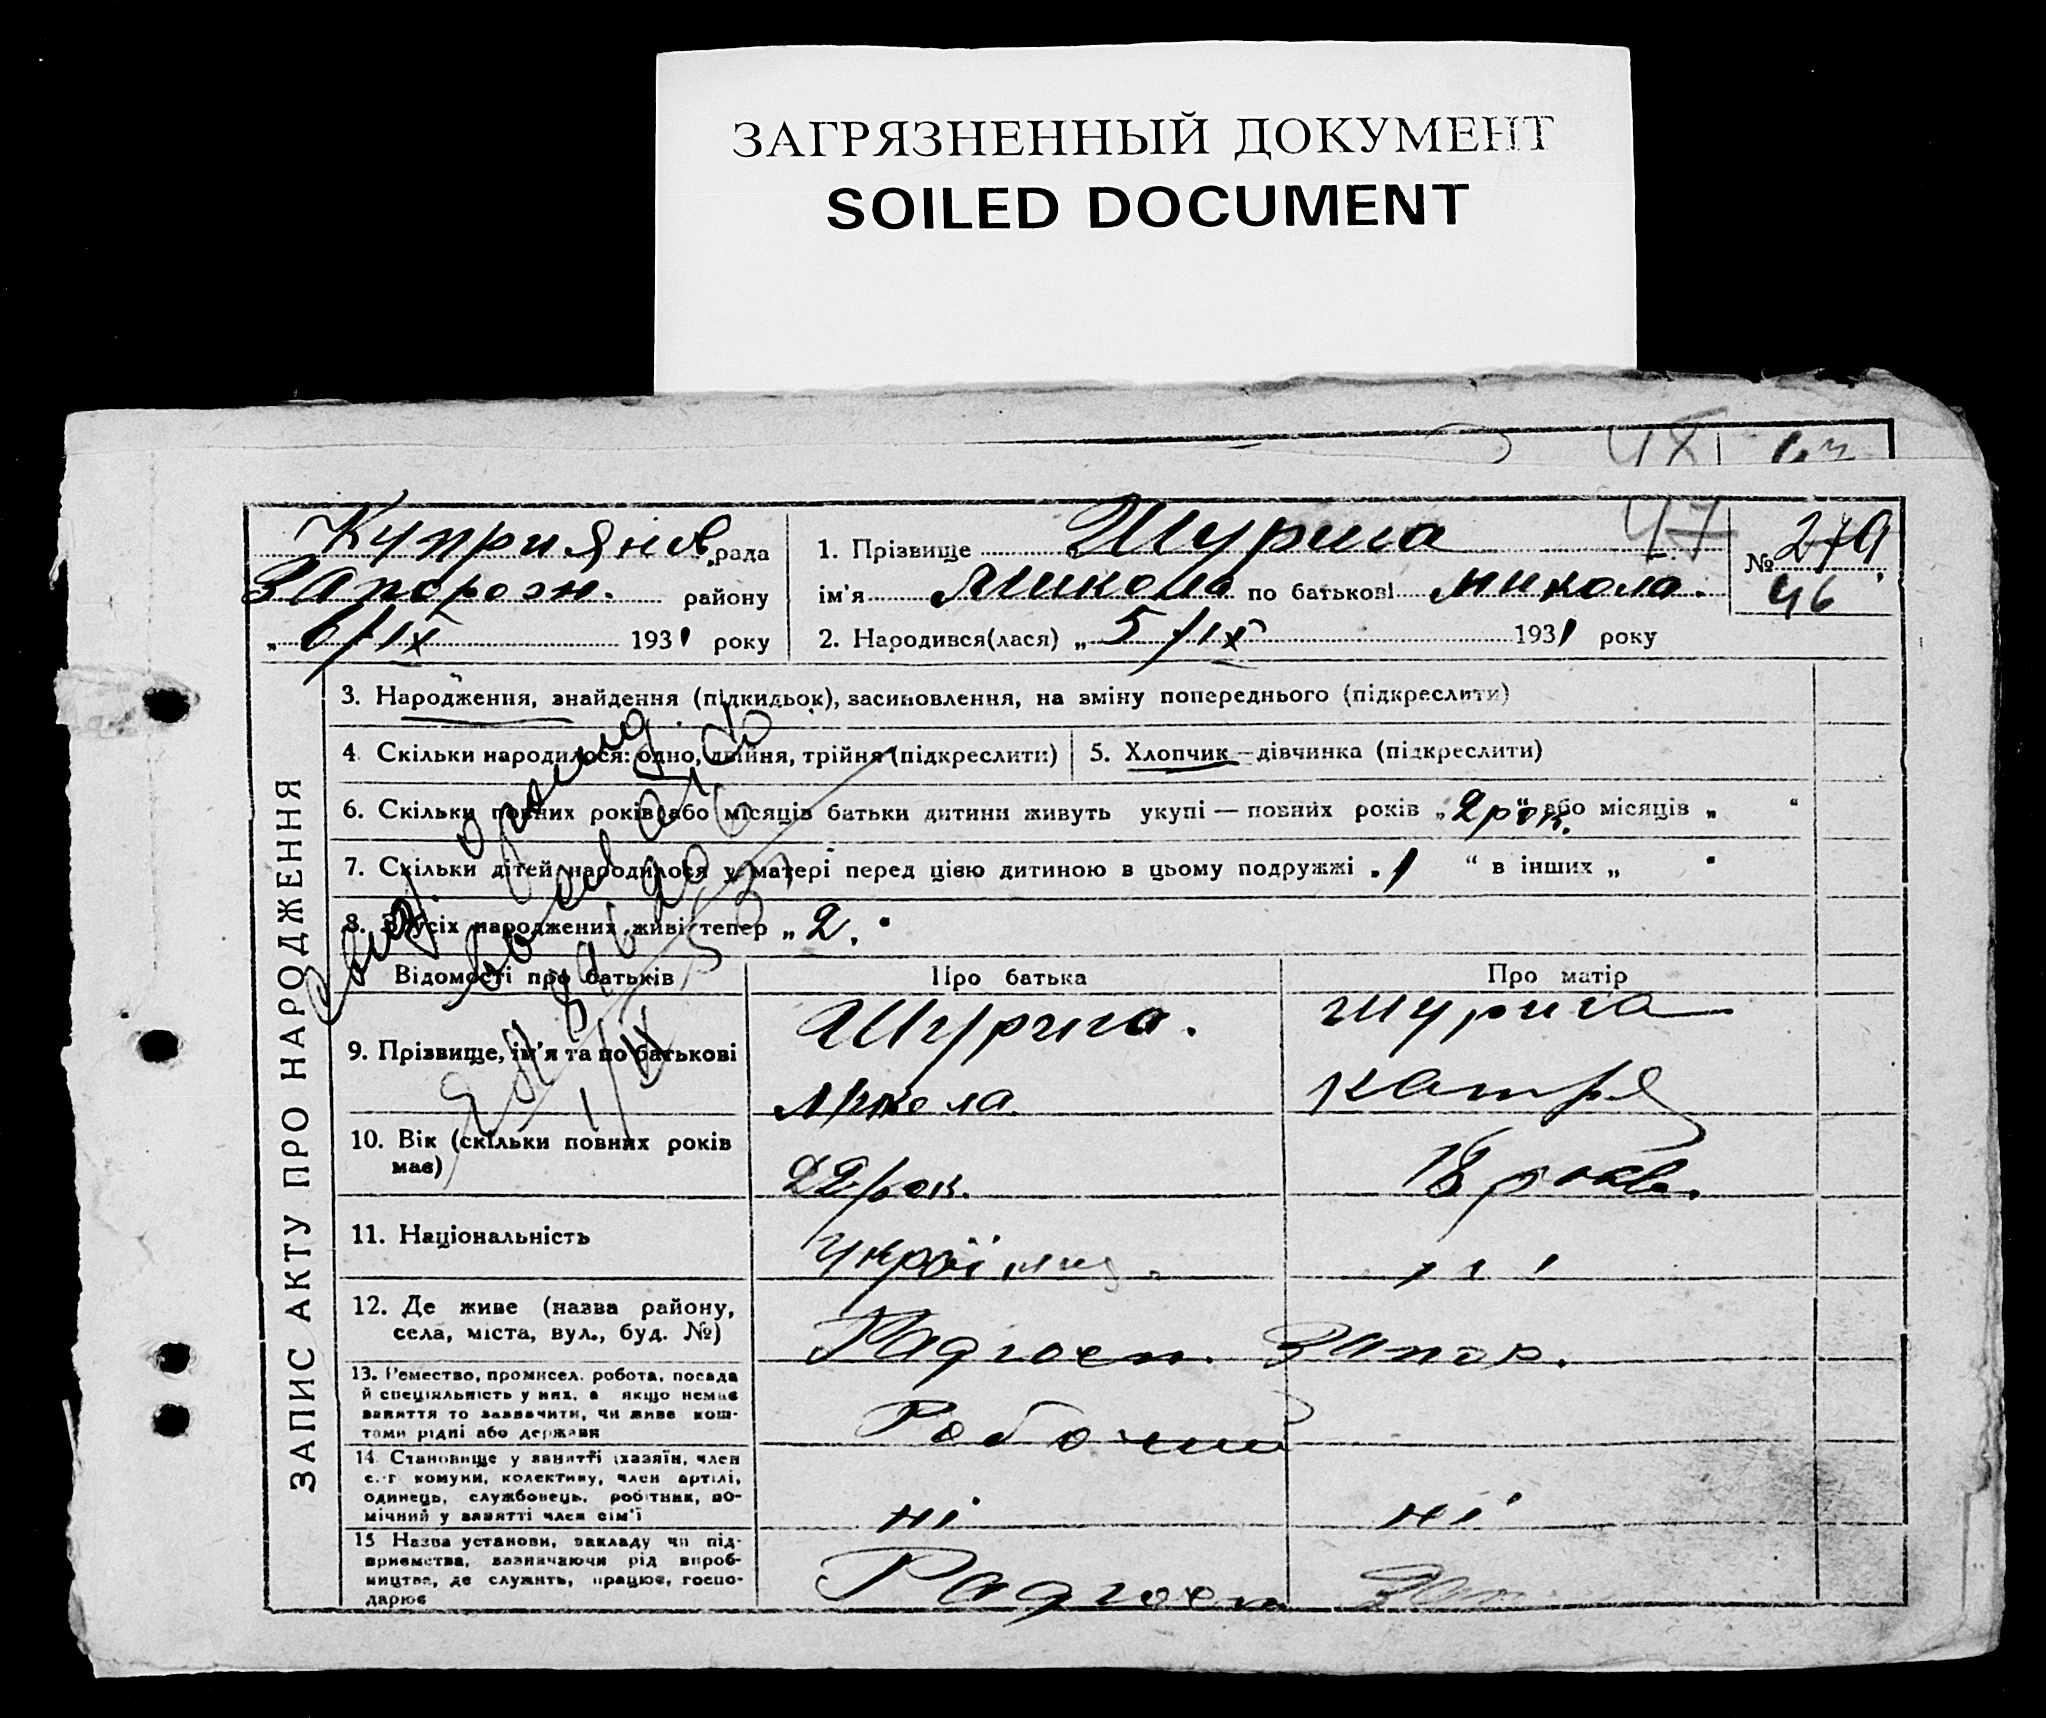 ЗАГРЯЗНЕННЫЙ ДОКУМЕНТ
SOILED DOCUMENT
47
Куприянов. рада
Запорожн. району
„ 6/IX 1931 року
1. Прізвище Шурига
ім'я Микола по батькові Микола.
2. Народився(лася) „ 5/IX 1931 року
№ 279
46
ЗАПИС АКТУ ПРО НАРОДЖЕННЯ
3. Народження, знайдення (підкидьок), засиновлення, на зміну попереднього (підкреслити)
4. Скільки народилося: одно, двійня, трійня (підкреслити)
5. Хлопчик – дівчинка (підкреслити)
6. Скільки повних років або місяців батьки дитини живуть укупі — повних років „ 2 рок. “ або місяців „ “
7. Скільки дітей народилося у матері перед цією дитиною в цьому подружжі „ 1 “ в інших „ “
8. З усіх народжених живі тепер „ 2. “
Відомості про батьків
Про батька
Про матір
9. Прізвище, ім'я та по батькові
Шурига.
Микола
Шурига
Катря
10. Вік (скільки повних років має)
22 рок.
18 років.
11. Національність
україн
" "
12. Де живе (назва району, села, міста, вул., буд. №)
Радгосп. Запор.
13. Ремество, промисел, робота, посада
й спеціяльність у них, а якщо немає
заняття то зазначити, чи живе кош-
тами рідні або держави
Робочий
14. Становище у занятті (хазяїн, член
с.-г комуни, колективу, член артілі,
одинець, службовець, робітник, по-
мічний у занятті член сім'ї
ні
ні
15 Назва установи, закладу чи під-
приємства, зазначаючи рід вироб-
ництва, де служить, працює, госпо-
дарює
Радгосп Зап